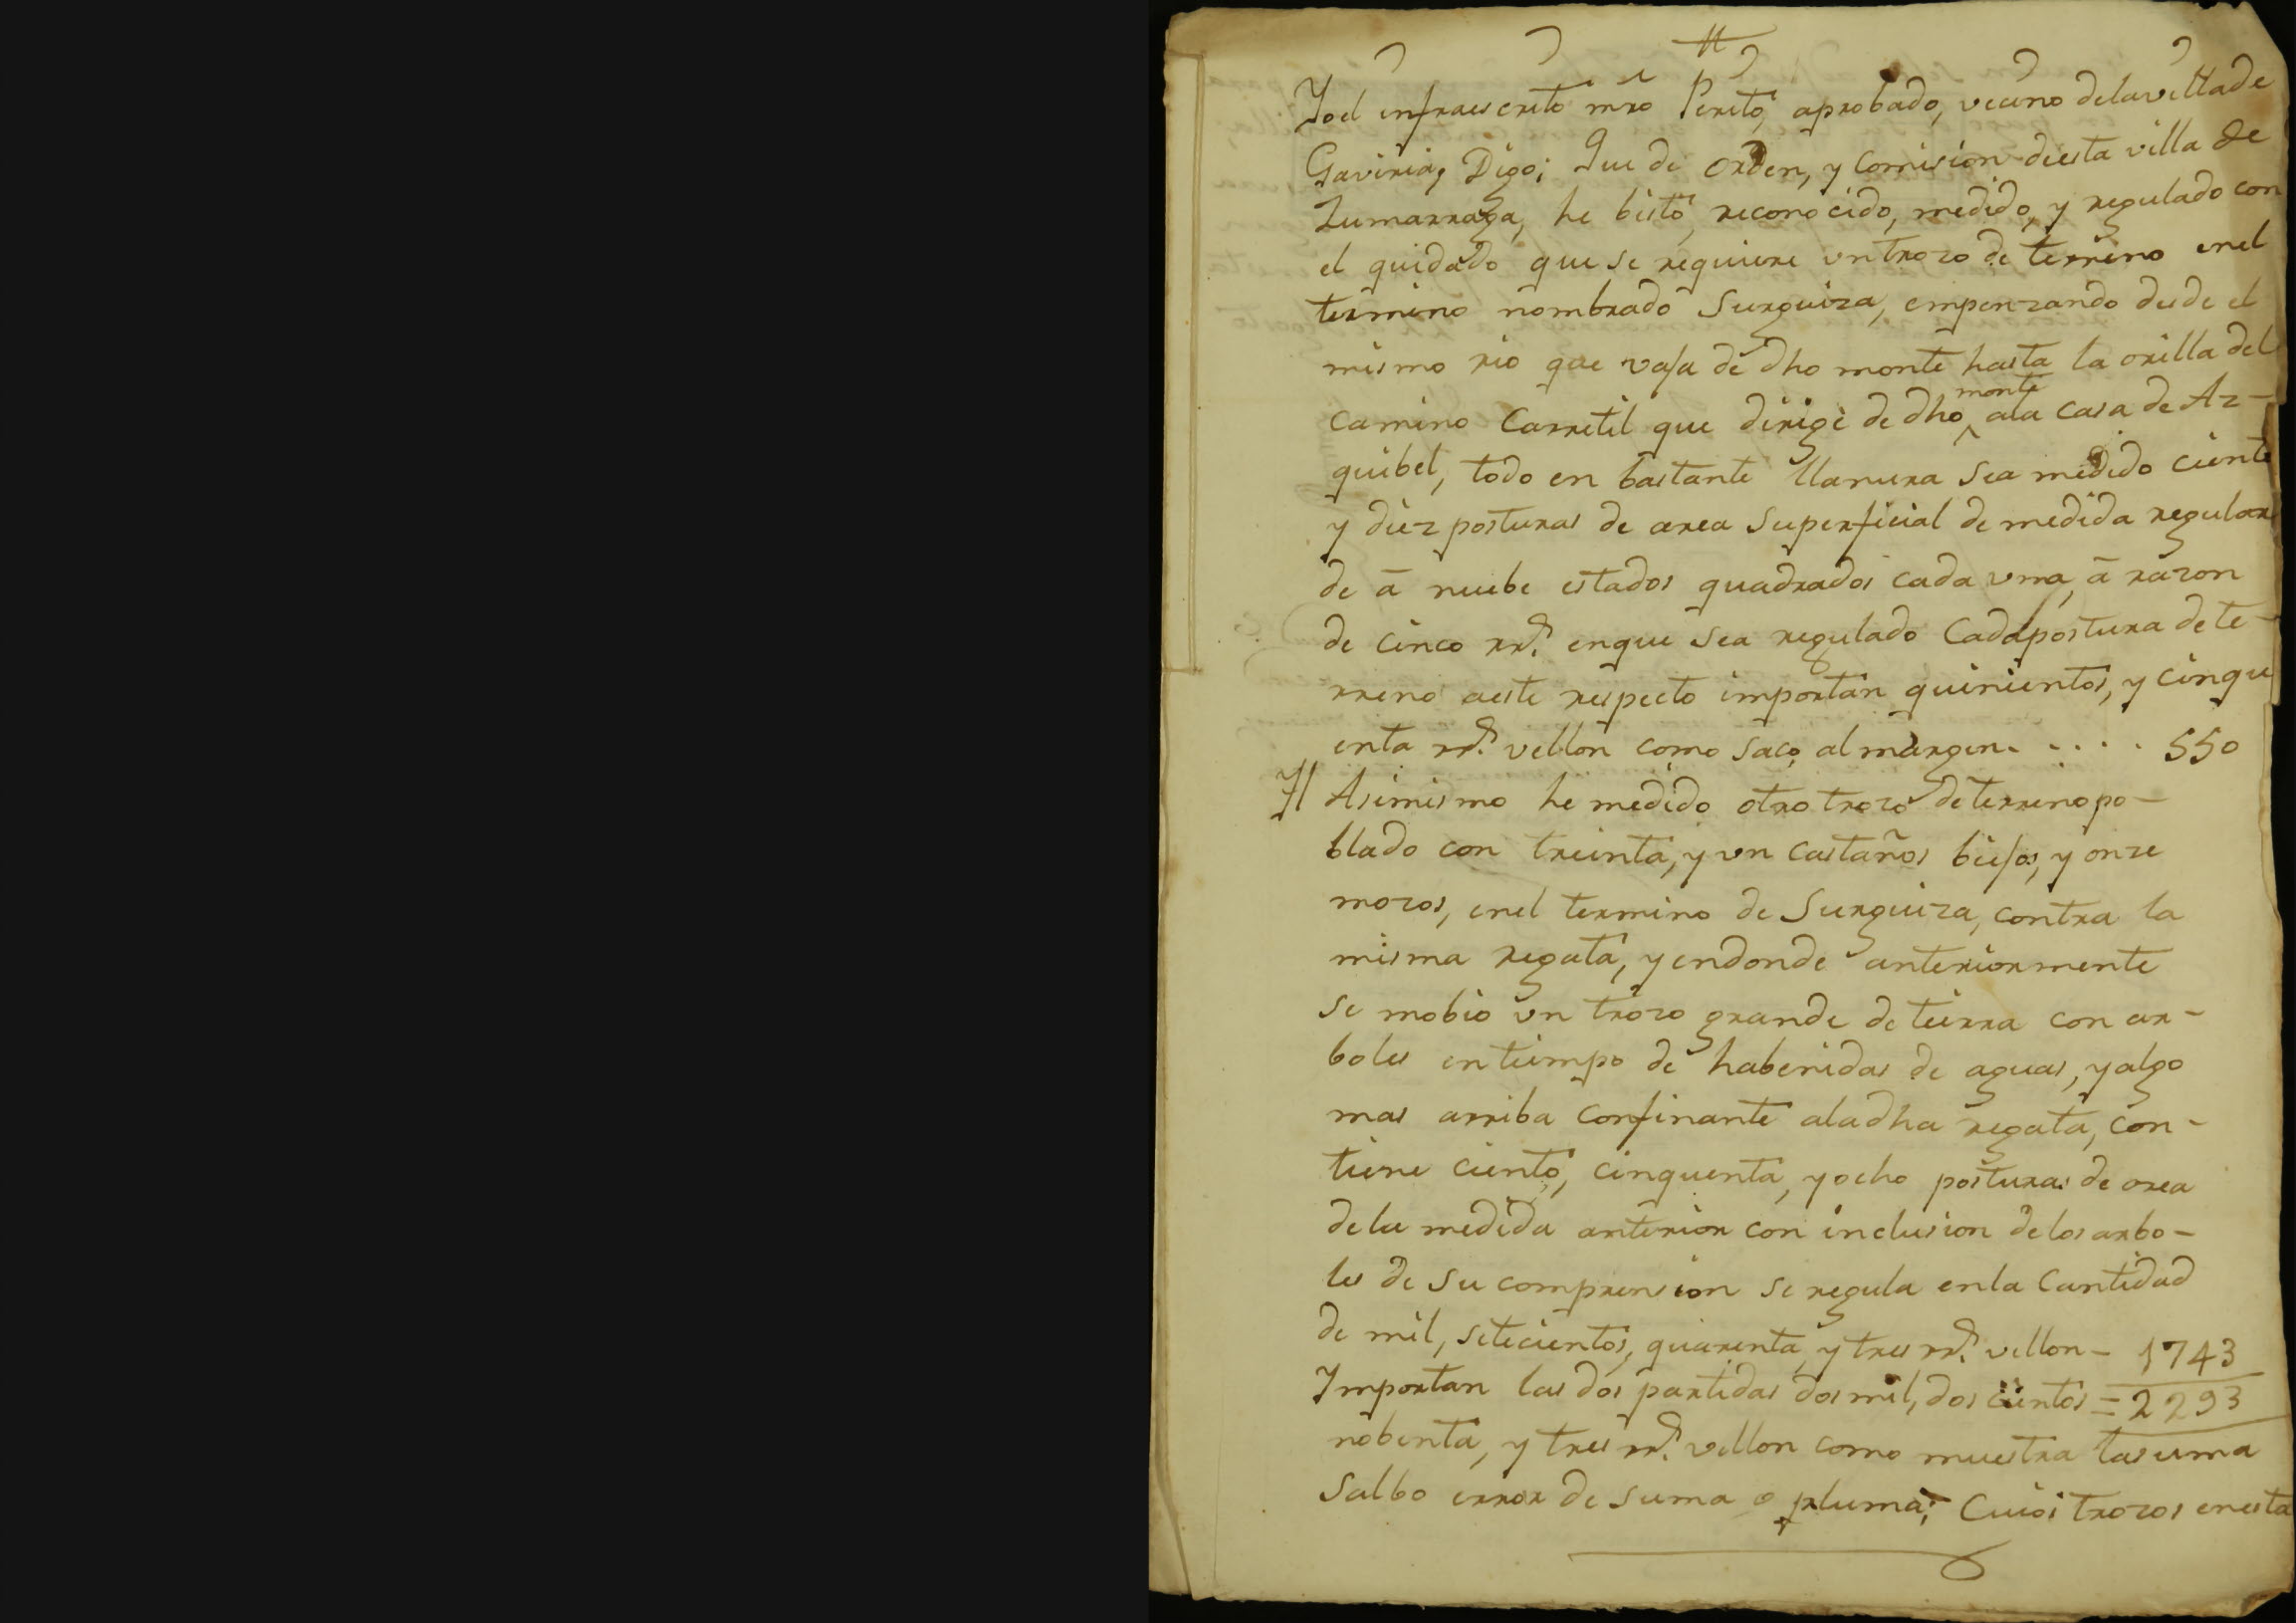 Yo el infraescrito mro Perito, aprobado, vecino dela villa de
Gaviria, Digo; Que de orden, y Comision deesta villa de
Zumarraga, he bisto, reconocido, medido, y regulado con
el quidado que se requiere vn trozo de terreno enel
termino nombrado Surguiza, empenzando desde el
mismo rio que vaja de dho monte hasta la orilla del
Camino Carretil que dirige de dho monte ala Casa de Az-
quibel, todo en bastante llanura sea medido ciento
y diez posturas de area Superficial de medida regular
de â nuebe estados quadrados cada vna, â razon
de cinco rrs. enque sea regulado Cada postura de te-
rreno aeste respecto importan quinientos, y cinqu
enta rrs. vellon como saco, al margen. . . . . 550
Yt Asimismo he medido otro trozo de terreno po-
blado con treinta, y vn castaños biejos, y onze
mozos, enel termino de Surguiza, contra la
misma regata, y endonde anteriormente
se mobio vn trozo grande de tierra con ar-
boles en tiempo de habenidas de aguas, y algo
mas arriba Confinante aladha regata, con-
tiene ciento, cinquenta, y ocho posturas de area
dela medida anterior con inclusion delos arbo-
les de su comprension se regula enla Cantidad
de mil, setecientos, quarenta, y tres rrs. vellon - 1743
Importan las dos partidas dos mil, dos cientos = 2293
nobenta, y tres rrs. vellon como muestra la suma
Salbo error de suma o pluma; Cuios trozos enesta